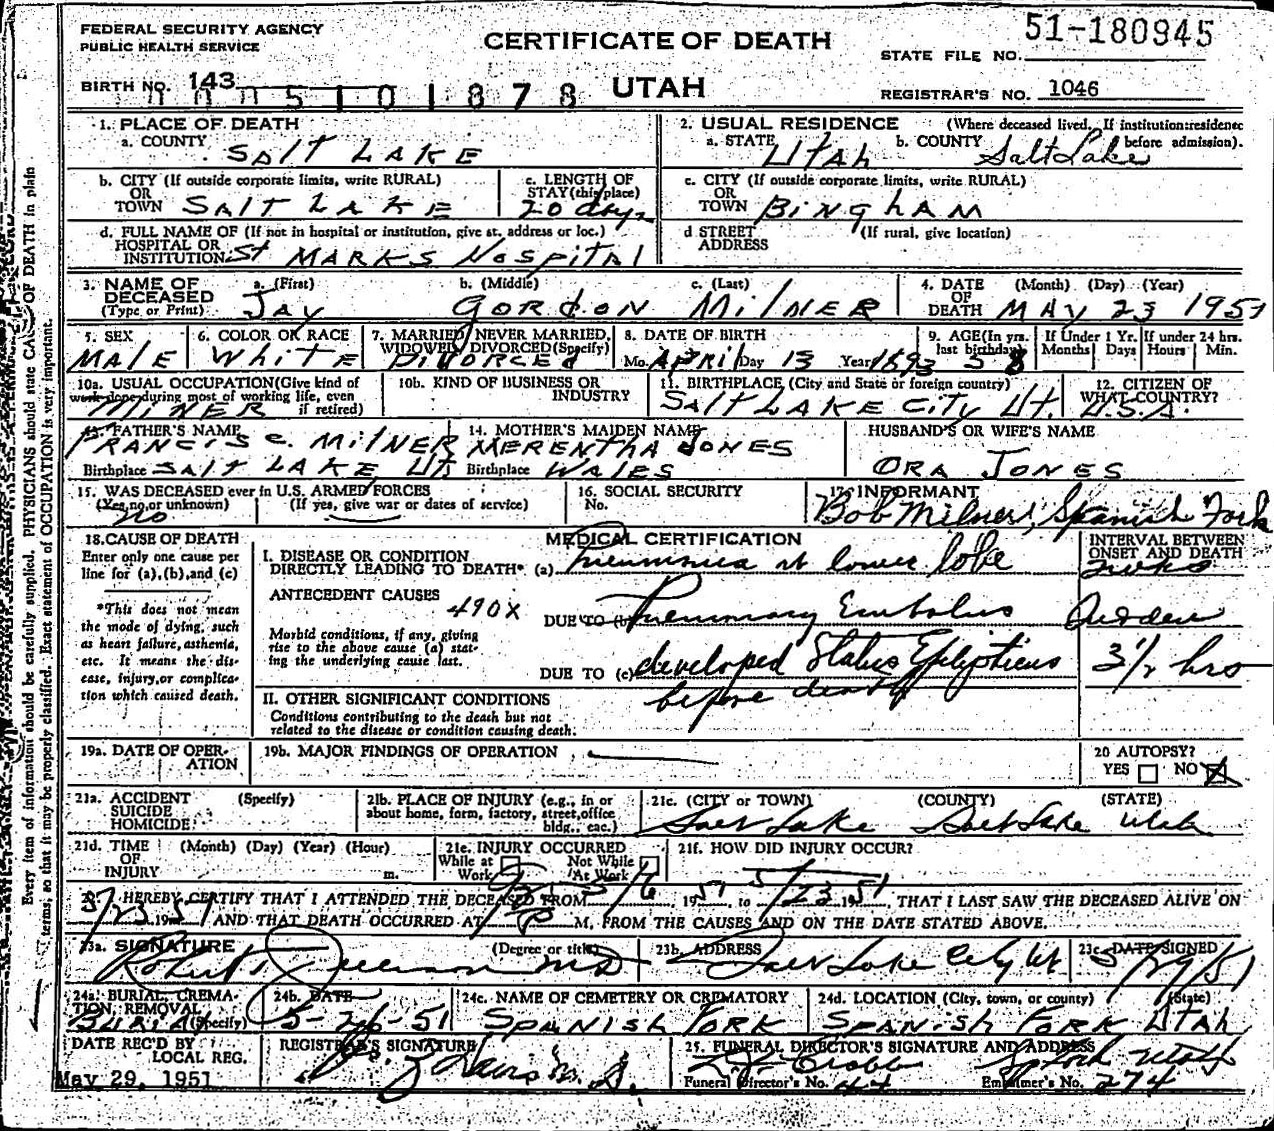 FEDERAL SECURITY AGENCY
PUBLIC HEALTH SERVICE
CERTIFICATE OF DEATH
51-180945
STATE FILE NO.
BIRTH NO. 143
5 1 0 1 8 7 8
UTAH
REGISTRAR'S NO. 1046
1. PLACE OF DEATH
a. COUNTY SALT LAKE
2. USUAL RESIDENCE (Where deceased lived. If institution: residence before admission).
a. STATE Utah b. COUNTY Salt Lake
b. CITY (If outside corporate limits, write RURAL) OR TOWN SALT LAKE
c. LENGTH OF STAY (this place) 20 days
c. CITY (If outside corporate limits, write RURAL) OR TOWN BINGHAM
d. FULL NAME OF (If not in hospital or institution, give st. address or loc.) HOSPITAL OR INSTITUTION St MARKS Hospital
d STREET ADDRESS (If rural, give location)
3. NAME OF DECEASED (Type or Print) a. (First) JAY b. (Middle) GORDON c. (Last) MILNER
4. DATE OF DEATH (Month) (Day) (Year) MAY 23 1951
5. SEX MALE
6. COLOR OR RACE WHITE
7. MARRIED, NEVER MARRIED, WIDOWED, DIVORCED (Specify) DIVORCED
8. DATE OF BIRTH Mo. APRIL Day 13 Year 1893
9. AGE (In yrs. last birthday) 58
If Under 1 Yr. Months Days
If under 24 hrs. Hours Min.
10a. USUAL OCCUPATION (Give kind of work done during most of working life, even if retired) MINER
10b. KIND OF BUSINESS OR INDUSTRY
11. BIRTHPLACE (City and State or foreign country) SALT LAKE CITY Ut.
12. CITIZEN OF WHAT COUNTRY? U.S.A.
13. FATHER'S NAME FRANCIS C. MILNER
Birthplace SALT LAKE Ut
14. MOTHER'S MAIDEN NAME MERENTHA JONES
Birthplace WALES
HUSBAND'S OR WIFE'S NAME
ORA JONES
15. WAS DECEASED ever in U.S. ARMED FORCES
(Yes, no, or unknown) no (If yes, give war or dates of service)
16. SOCIAL SECURITY No.
17. INFORMANT
Bob Milner, Spanish Fork
18. CAUSE OF DEATH
Enter only one cause per line for (a), (b), and (c)
*This does not mean the mode of dying, such as heart failure, asthenia, etc. It means the disease, injury, or complication which caused death.
MEDICAL CERTIFICATION
INTERVAL BETWEEN ONSET AND DEATH
I. DISEASE OR CONDITION DIRECTLY LEADING TO DEATH* (a) Pneumonia rt lower lobe
ANTECEDENT CAUSES 490X
Morbid conditions, if any, giving rise to the above cause (a) stating the underlying cause last.
DUE TO (b) Embolus
DUE TO (c) developed Status Epilepticus 3½ hrs
before death
II. OTHER SIGNIFICANT CONDITIONS
Conditions contributing to the death but not related to the disease or condition causing death.
19a. DATE OF OPERATION
19b. MAJOR FINDINGS OF OPERATION
20 AUTOPSY?
YES NO X
21a. ACCIDENT SUICIDE HOMICIDE (Specify)
21b. PLACE OF INJURY (e.g., in or about home, form, factory, street, office bldg., eac.)
21c. (CITY or TOWN) (COUNTY) (STATE)
Salt Lake Salt Lake Utah
21d. TIME OF INJURY (Month) (Day) (Year) (Hour) m.
21e. INJURY OCCURRED
While at Work Not While At Work
21f. HOW DID INJURY OCCUR?
22. I HEREBY CERTIFY THAT I ATTENDED THE DECEASED FROM 5/6 1951, to 5/23 1951, THAT I LAST SAW THE DECEASED ALIVE ON
5/23 1951 AND THAT DEATH OCCURRED AT M, FROM THE CAUSES AND ON THE DATE STATED ABOVE.
23a. SIGNATURE (Degree or title) Robert MD
23b. ADDRESS Salt Lake City Ut
23c. DATE SIGNED 5/29/51
24a. BURIAL, CREMATION, REMOVAL (Specify) BURIAL
24b. DATE 5-26-51
24c. NAME OF CEMETERY OR CREMATORY SPANISH FORK
24d. LOCATION (City, town, or county) (State) SPANISH FORK UTAH
DATE REC'D BY LOCAL REG.
May 29, 1951
REGISTRAR'S SIGNATURE
25. FUNERAL DIRECTOR'S SIGNATURE AND ADDRESS
Sp Fork Utah
Funeral Director's No. 44 Embalmer's No. 274
Every item of information should be carefully supplied. PHYSICIANS should state CAUSE OF DEATH in plain
terms; so that it may be properly classified. Exact statement of OCCUPATION is very important.